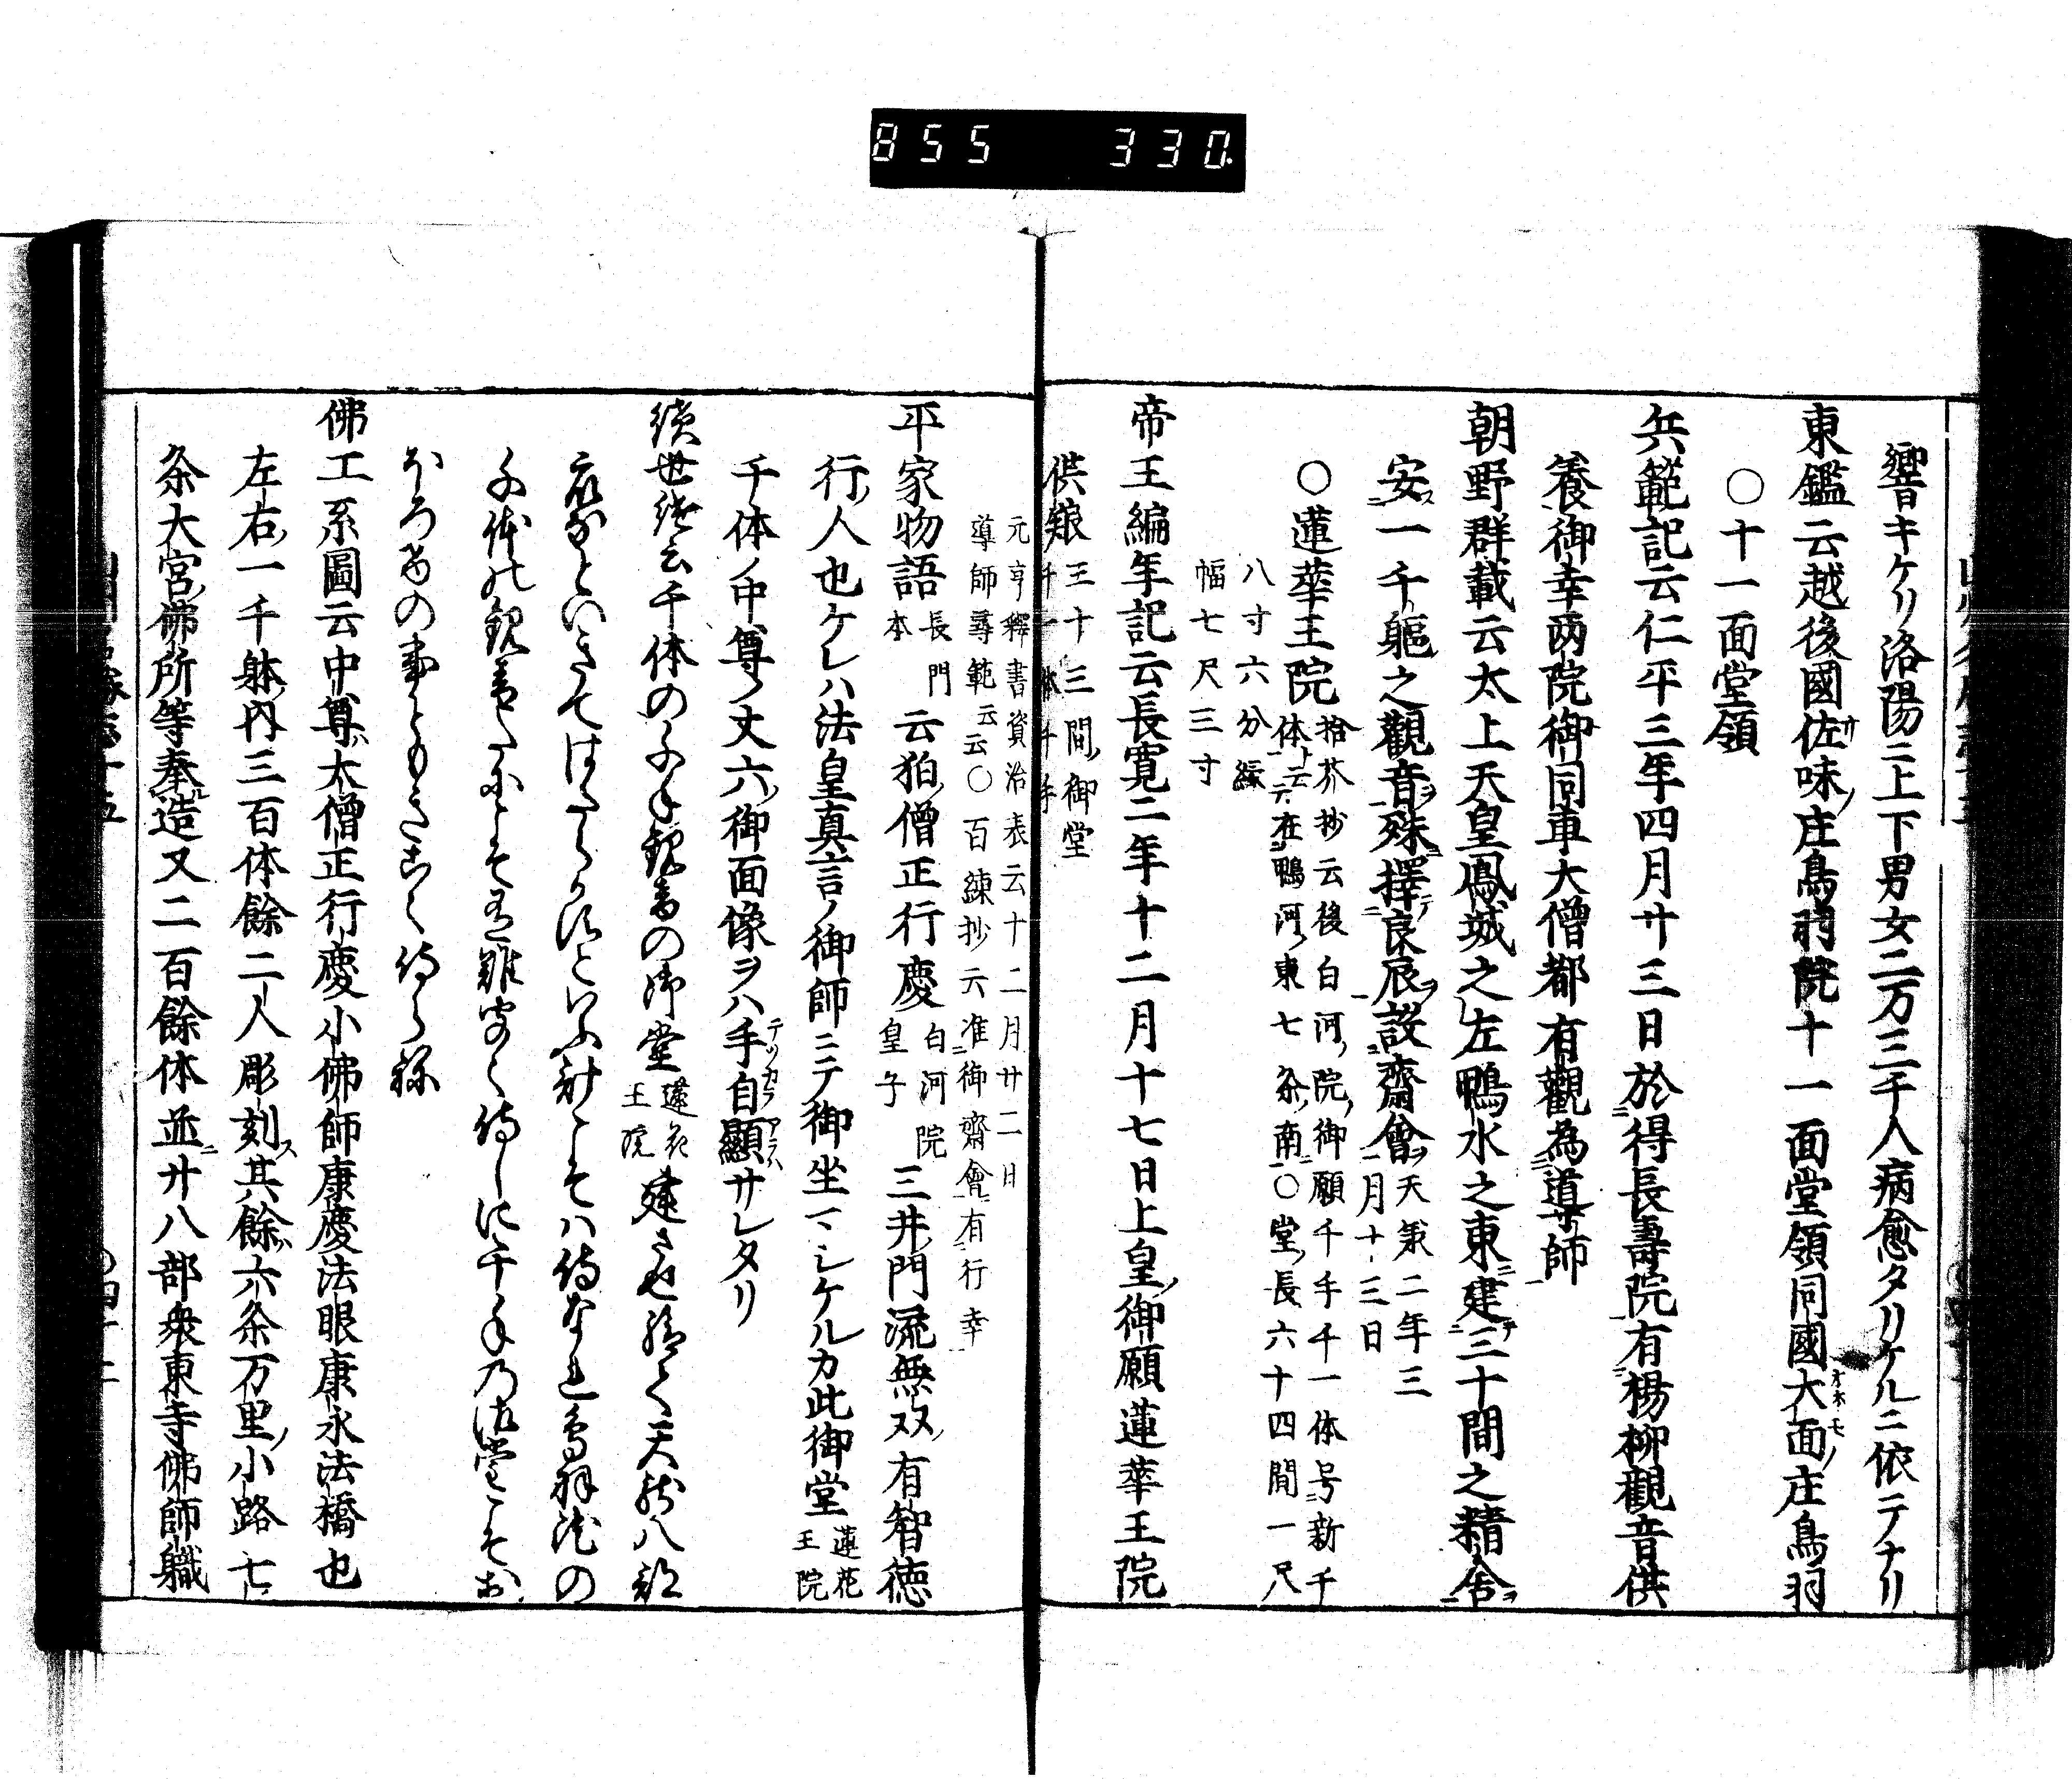 855 330
響キケリ洛陽ニ上下男女二万三千人病愈タリケルニ依テナリ
東鑑云越後國佐味ノ庄鳥羽院十一面堂領同國大面ノ庄鳥羽
〇十一面堂領
兵範記云仁平三年四月廿三日於得長壽院有楊柳觀音供
養御幸両院御同車大僧都有觀為導師
朝野群載云太上天皇鳳城之左鴨水之東建三十間之精舎
安一千軀之觀音殊擇良辰設齋會天承二年三
二月十三日
〇蓮華王院拾芥抄云後白河院御願千手千一体号新千
体云云在鴨河東七条南〇堂長六十四間一尺
八寸六分縁
幅七尺三寸
帝王編年記云長寛二年十二月十七日上皇ノ御願蓮華王院
供養三十三間御堂
千一体千手
元亨釋書資治表云十二月廿二日
導師尋範云云〇百練抄云准御齋會有行幸
平家物語長門
本云狛僧正行慶白河院
皇子三井門流無双有智徳
行人也ケレハ法皇真言ノ御師ニテ御坐マシケルカ此御堂蓮花
王院
千体ノ中尊丈六ノ御面像ヲハ手自顯サレタリ
續世継云千体の千手観音の御堂蓮花
王院建させ給て天龍八部
衆などいきてはたらかすといふ計こそハ侍なれ鳥羽院の
千体の観音たにこそ有難くく侍しに千手乃御堂こそお
ほろけの事ともきこえ侍らね
佛工系圖云中尊ハ大僧正行慶小佛師康慶法眼康永法橋也
左右一千躰内三百体餘二人彫刻ス其餘ハ六条万里小路七
条大宮佛所等奉造又二百餘体並廿八部衆東寺佛師職